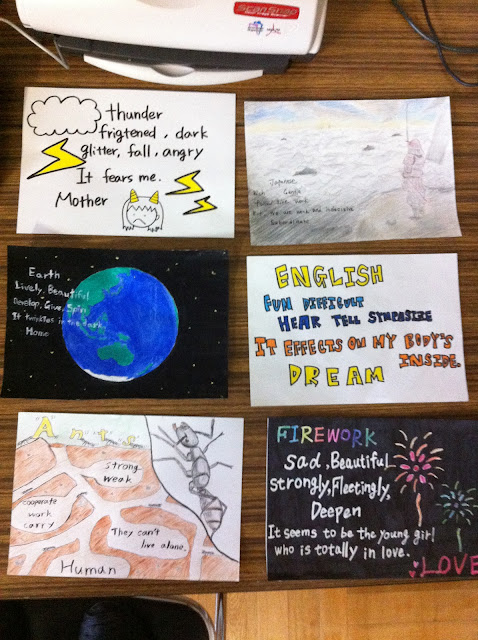 SCANSNAP
thunder
frigtened, dark
glitter, fall, angry
It fears me.
Mother
Japanese
Work
national game
Earth
Lively, Beautiful
Develop, Give, Spin
It twinkles in the dark.
Home
ENGLISH
FUN DIFFICULT
HEAR TELL SYMPOSIZE
IT EFFECTS ON MY BODY'S
INSIDE.
DREAM
"Ants"
strong
weak
cooperate
work
carry
They can't
live alone.
Human
FIREWORK
Sad, Beautiful
Strongly, Fleetingly,
Deepen
It seems to be the young girl
who is totally in love.
LOVE